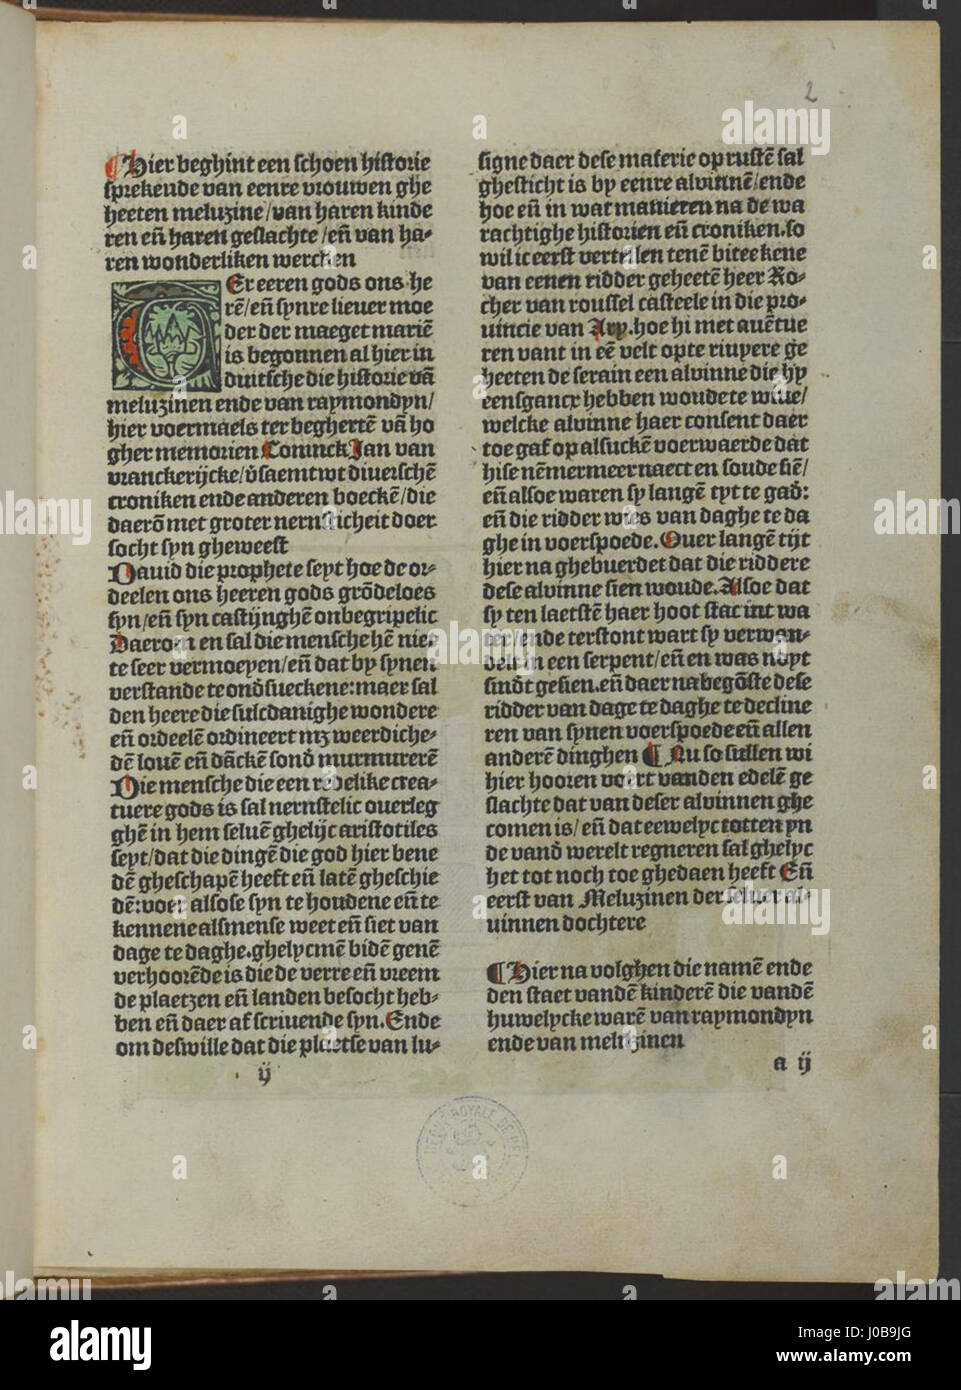 2
¶ Hier beghint een schoen historie
sprekende van eenre vrouwen ghe
heeten meluzine/van haren kinde
ren eñ haren geslachte/eñ van ha-
ren wonderliken wercken
TEr eeren gods ons he
rē/eñ synre lieuer moe
der der maeget mariē
is begonnen al hier in
duitsche die historie vā
meluzinen ende van raymondyn/
hier voermaels ter beghertē vā ho
gher memorien Coninck Jan van
vranckerijcke/v̄saemt wt diuerschē
croniken ende anderen boeckē/die
daerō met groter nernsticheit doer
socht syn gheweest
Dauid die prophete seyt hoe de or-
deelen ons heeren gods grōdeloes
syn/eñ syn castijnghē onbegripelic
Daerom en sal die mensche hē nie-
te seer vermoeyen/eñ dat by synen
verstande te ond̄sueckene:maer sal
den heere die sulcdanighe wondere
eñ ordeelē ordineert mz weerdiche-
dē louē eñ dāckē sond̄ murmurerē
Die mensche die een redelike crea-
tuere gods is sal nernstelic ouerleg
ghē in hem seluē ghelijc aristotiles
seyt/dat die dingē die god hier bene
dē gheschapē heeft eñ latē gheschie
dē:voer alsose syn te houdene eñ te
kennene alsmense weet eñ siet van
dage te daghe.ghelycmē bidē genē
verhoorēde is die de verre eñ vreem
de plaetzen eñ landen besocht heb-
ben eñ daer af scriuende syn.Ende
om deswille dat die plaetse van lu-
ij
signe daer dese materie op rustē sal
ghesticht is by eenre alvinnē/ende
hoe eñ in wat manieren na de wa
rachtighe historien eñ croniken.so
wil ic eerst vertellen tenē biteekene
van eenen ridder geheetē heer Ro-
cher van roussel casteele in die pro-
uincie van Arx.hoe hi met auētue
ren vant in eē velt opte riuyere ge
heeten de serain een alvinne die hy
eensgancx hebben woude te wiue/
welcke alvinne haer consent daer
toe gaf op alsuckē voerwaerde dat
hise nēmermeer naect en soude siē/
eñ alsoe waren sy langē tyt te gad̄:
eñ die ridder wies van daghe te da
ghe in voerspoede.Ouer langē tijt
hier na ghebuerdet dat die riddere
dese alvinne sien woude.Alsoe dat
sy ten laetstē haer hoot stac int wa
ter/ende terstont wart sy verwan-
delt in een serpent/eñ en was noyt
sind̄t gesien.eñ daer na begōste dese
ridder van dage te daghe te decline
ren van synen voerspoede eñ allen
anderē dinghen ¶ Nu so sullen wi
hier hooren voert vanden edelē ge
slachte dat van deser alvinnen ghe
comen is/eñ dat eewelyc totten yn
de vand̄ werelt regneren sal ghelyc
het tot noch toe ghedaen heeft Eñ
eerst van Meluzinen der seluer al-
uinnen dochtere
¶ Hier na volghen die namē ende
den staet vandē kinderē die vandē
huwelycke warē van raymondyn
ende van meluzinen
a ij
alamy
Image ID: J0B9JG
www.alamy.com